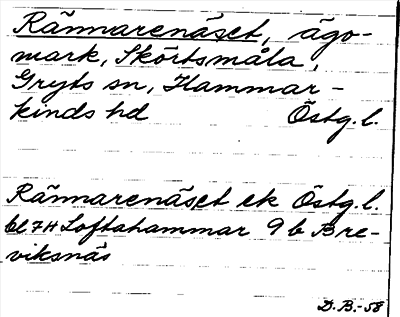 Rännarenäset, ägo-
mark, Skörtsmåla,
Gryts sn, Hammar-
kinds hd Östg. l.
Rännarenäset ek Östg. l.
bl 7H Loftahammar 9 b Bre-
viksnäs
D. B.-58